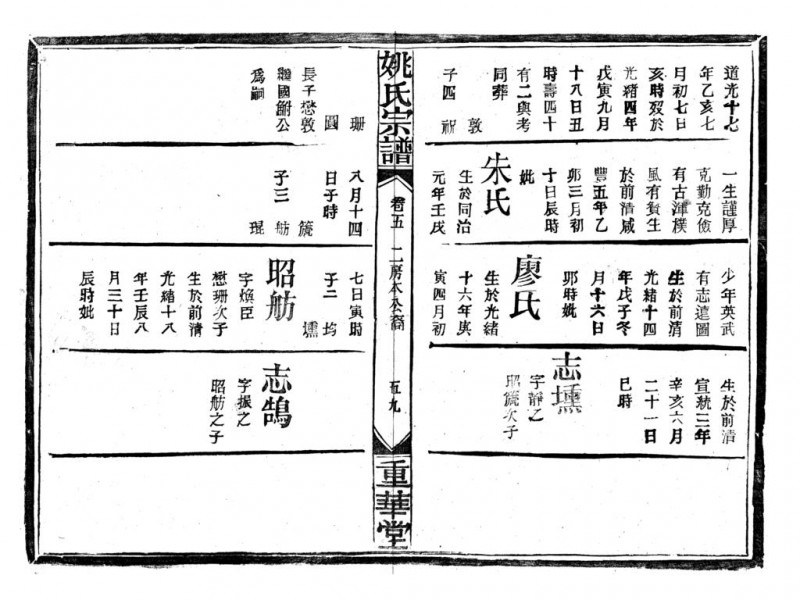 道光十七
年乙亥七
月初七日
亥時歿於
光緒四年
戊寅九月
十八日丑
時壽四十
有二與考
同葬
敦
子四 祝
珊
圓
長子懋敦
繼國鮒公
為嗣
一生謹厚
克勤克儉
有古渾樸
風有賢生
於前清咸
豐五年乙
卯三月初
十日辰時
妣
朱氏
生於同治
元年壬戌
八月十四
日子時
箎
子三 舫
琨
少年英武
有志遠圖
生於前清
光緒十四
年戊子冬
月十六日
卯時妣
廖氏
生於光緒
十六年庚
寅四月初
七日寅時
子二 均
壎
昭舫
字煥臣
懋珊次子
生於前清
光緒十八
年壬辰八
月三十日
辰時妣
生於前清
宣統三年
辛亥六月
二十一日
巳時
志壎
字靜之
昭箎次子
志鵠
字振之
昭舫之子
姚氏宗譜
卷五 二房本公裔 五九
重華堂